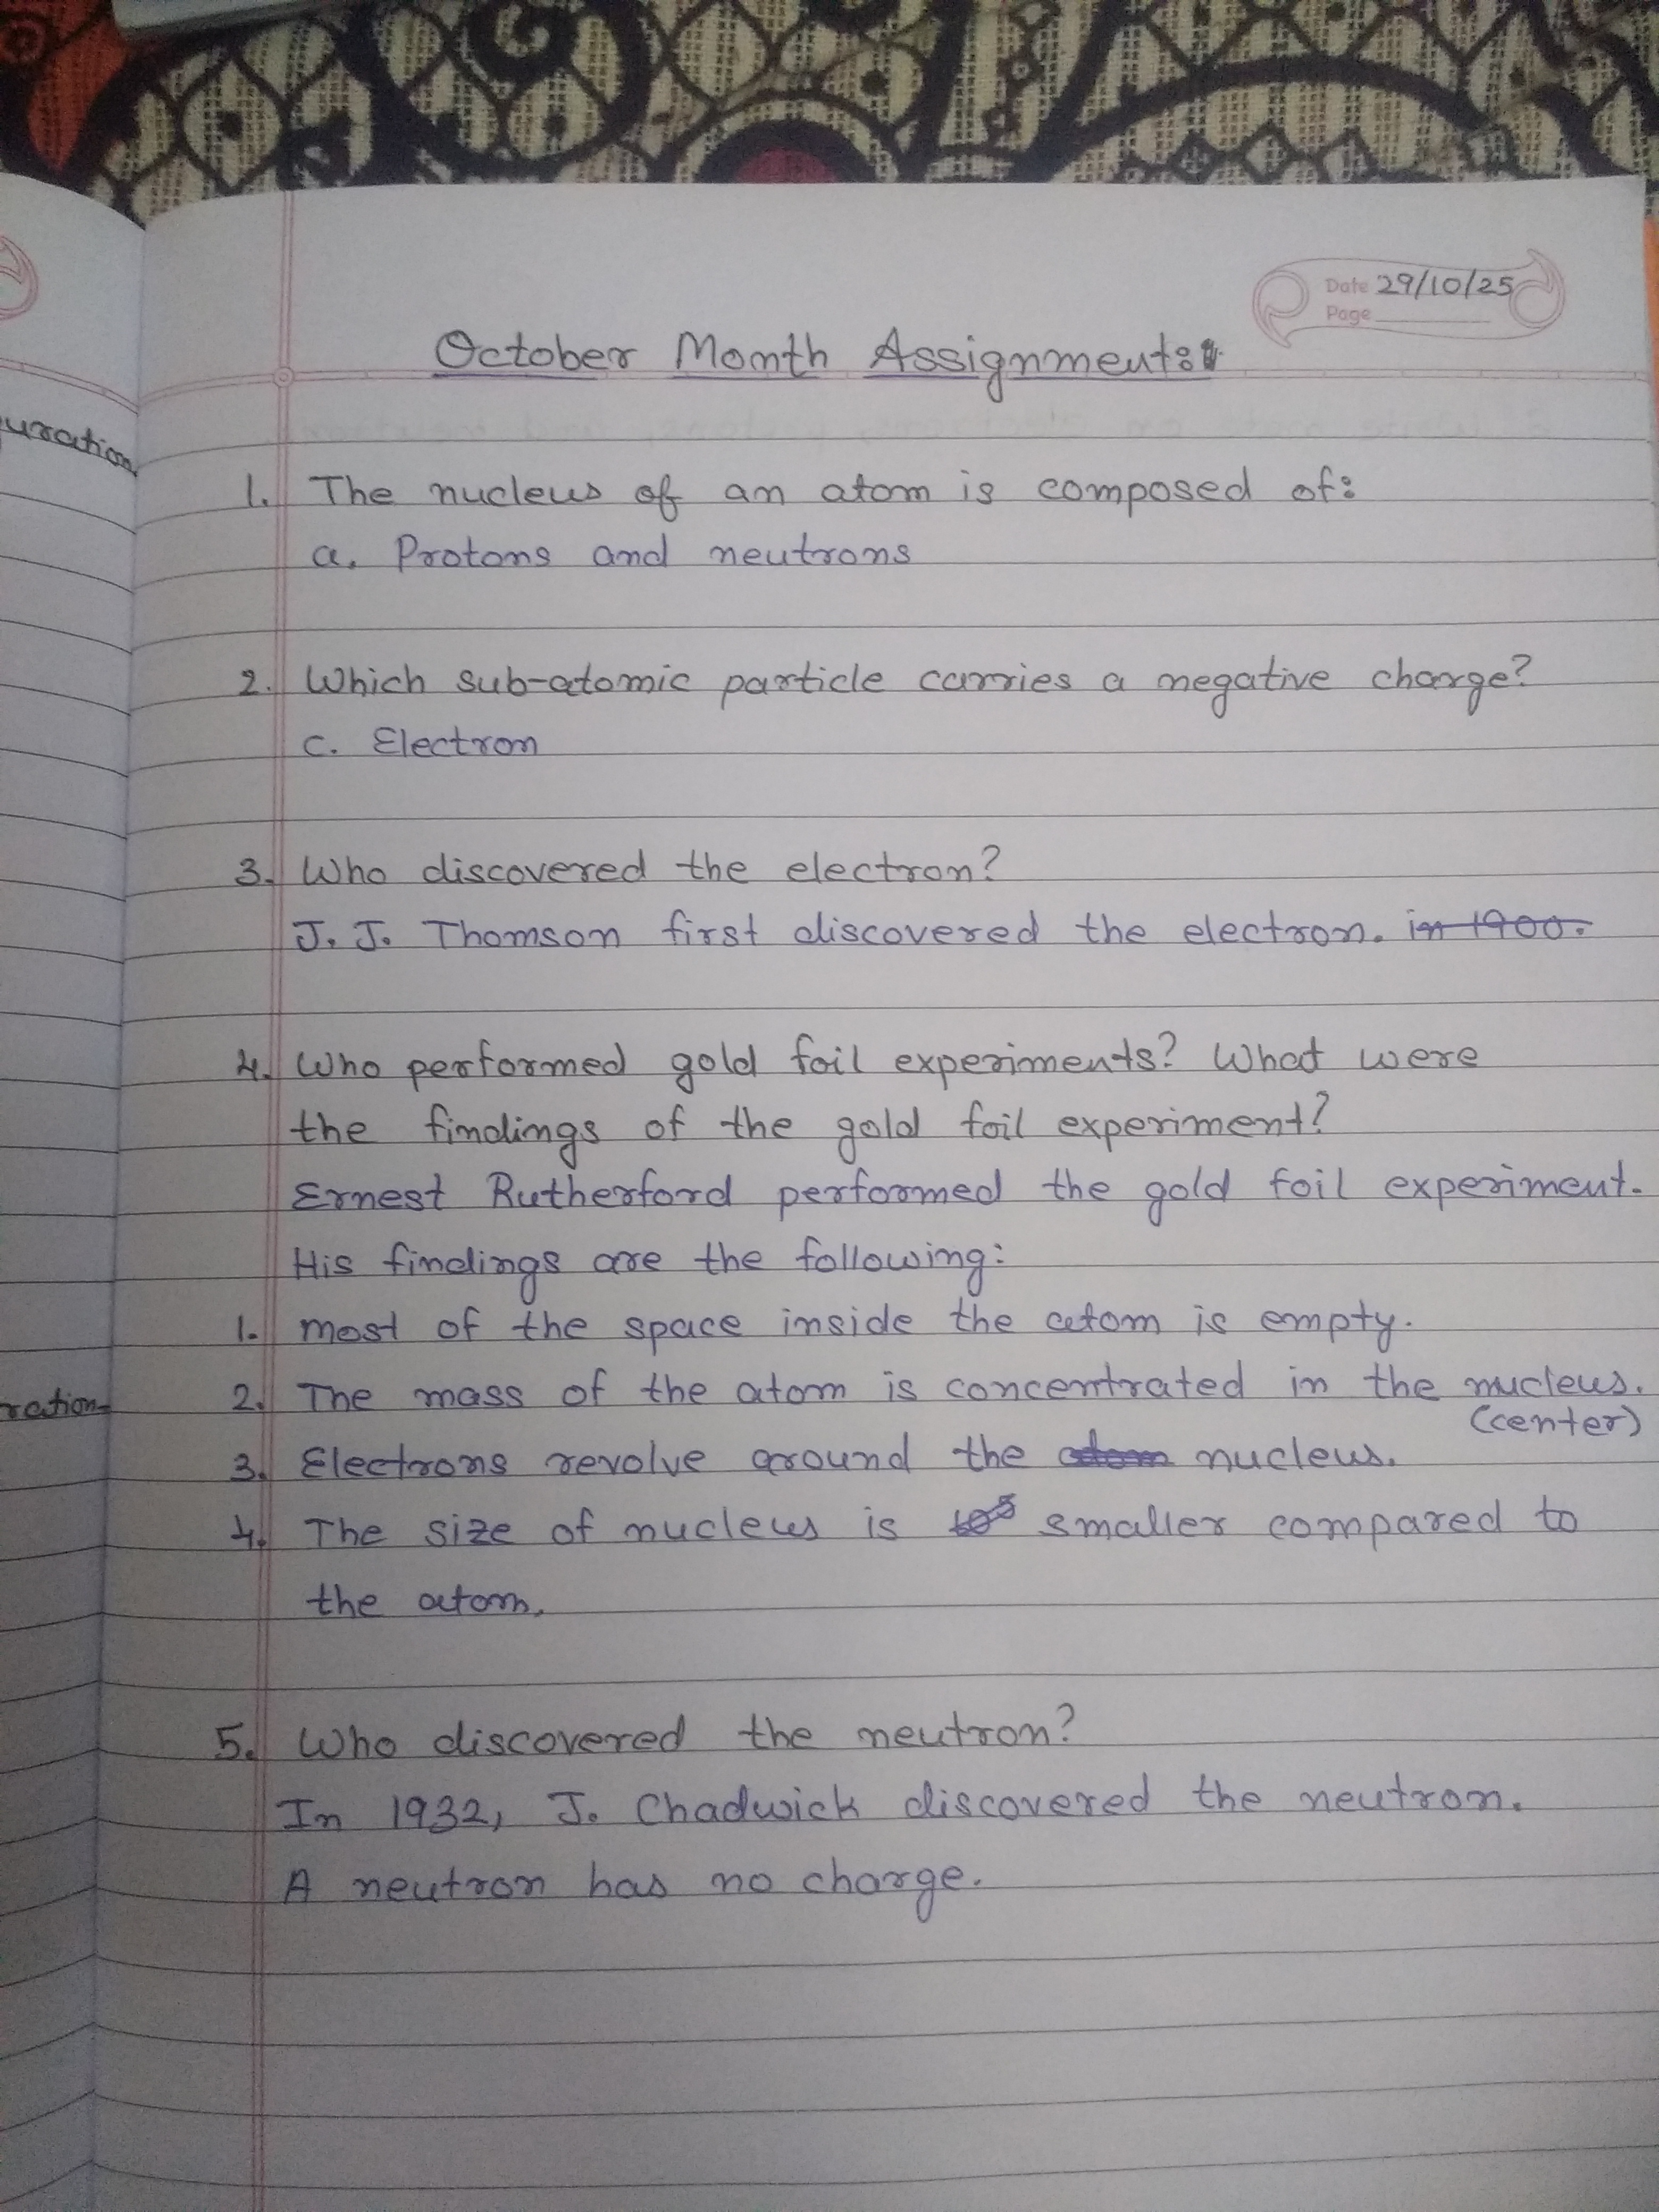 Date 29/10/25
Page
October Month Assignment:
1. The nucleus of an atom is composed of:
a. Protons and neutrons
2. Which sub-atomic particle carries a negative charge?
c. Electron
3. Who discovered the electron?
J. J. Thomson first discovered the electron. in 1900.
4. Who performed gold foil experiments? What were
the findings of the gold foil experiment?
Ernest Rutherford performed the gold foil experiment.
His findings are the following:
1. most of the space inside the atom is empty.
2. The mass of the atom is concentrated in the nucleus.
(center)
3. Electrons revolve around the atom nucleus.
4. The size of nucleus is 10⁵ smaller compared to
the atom.
5. Who discovered the neutron?
In 1932, J. Chadwick discovered the neutron.
A neutron has no charge.